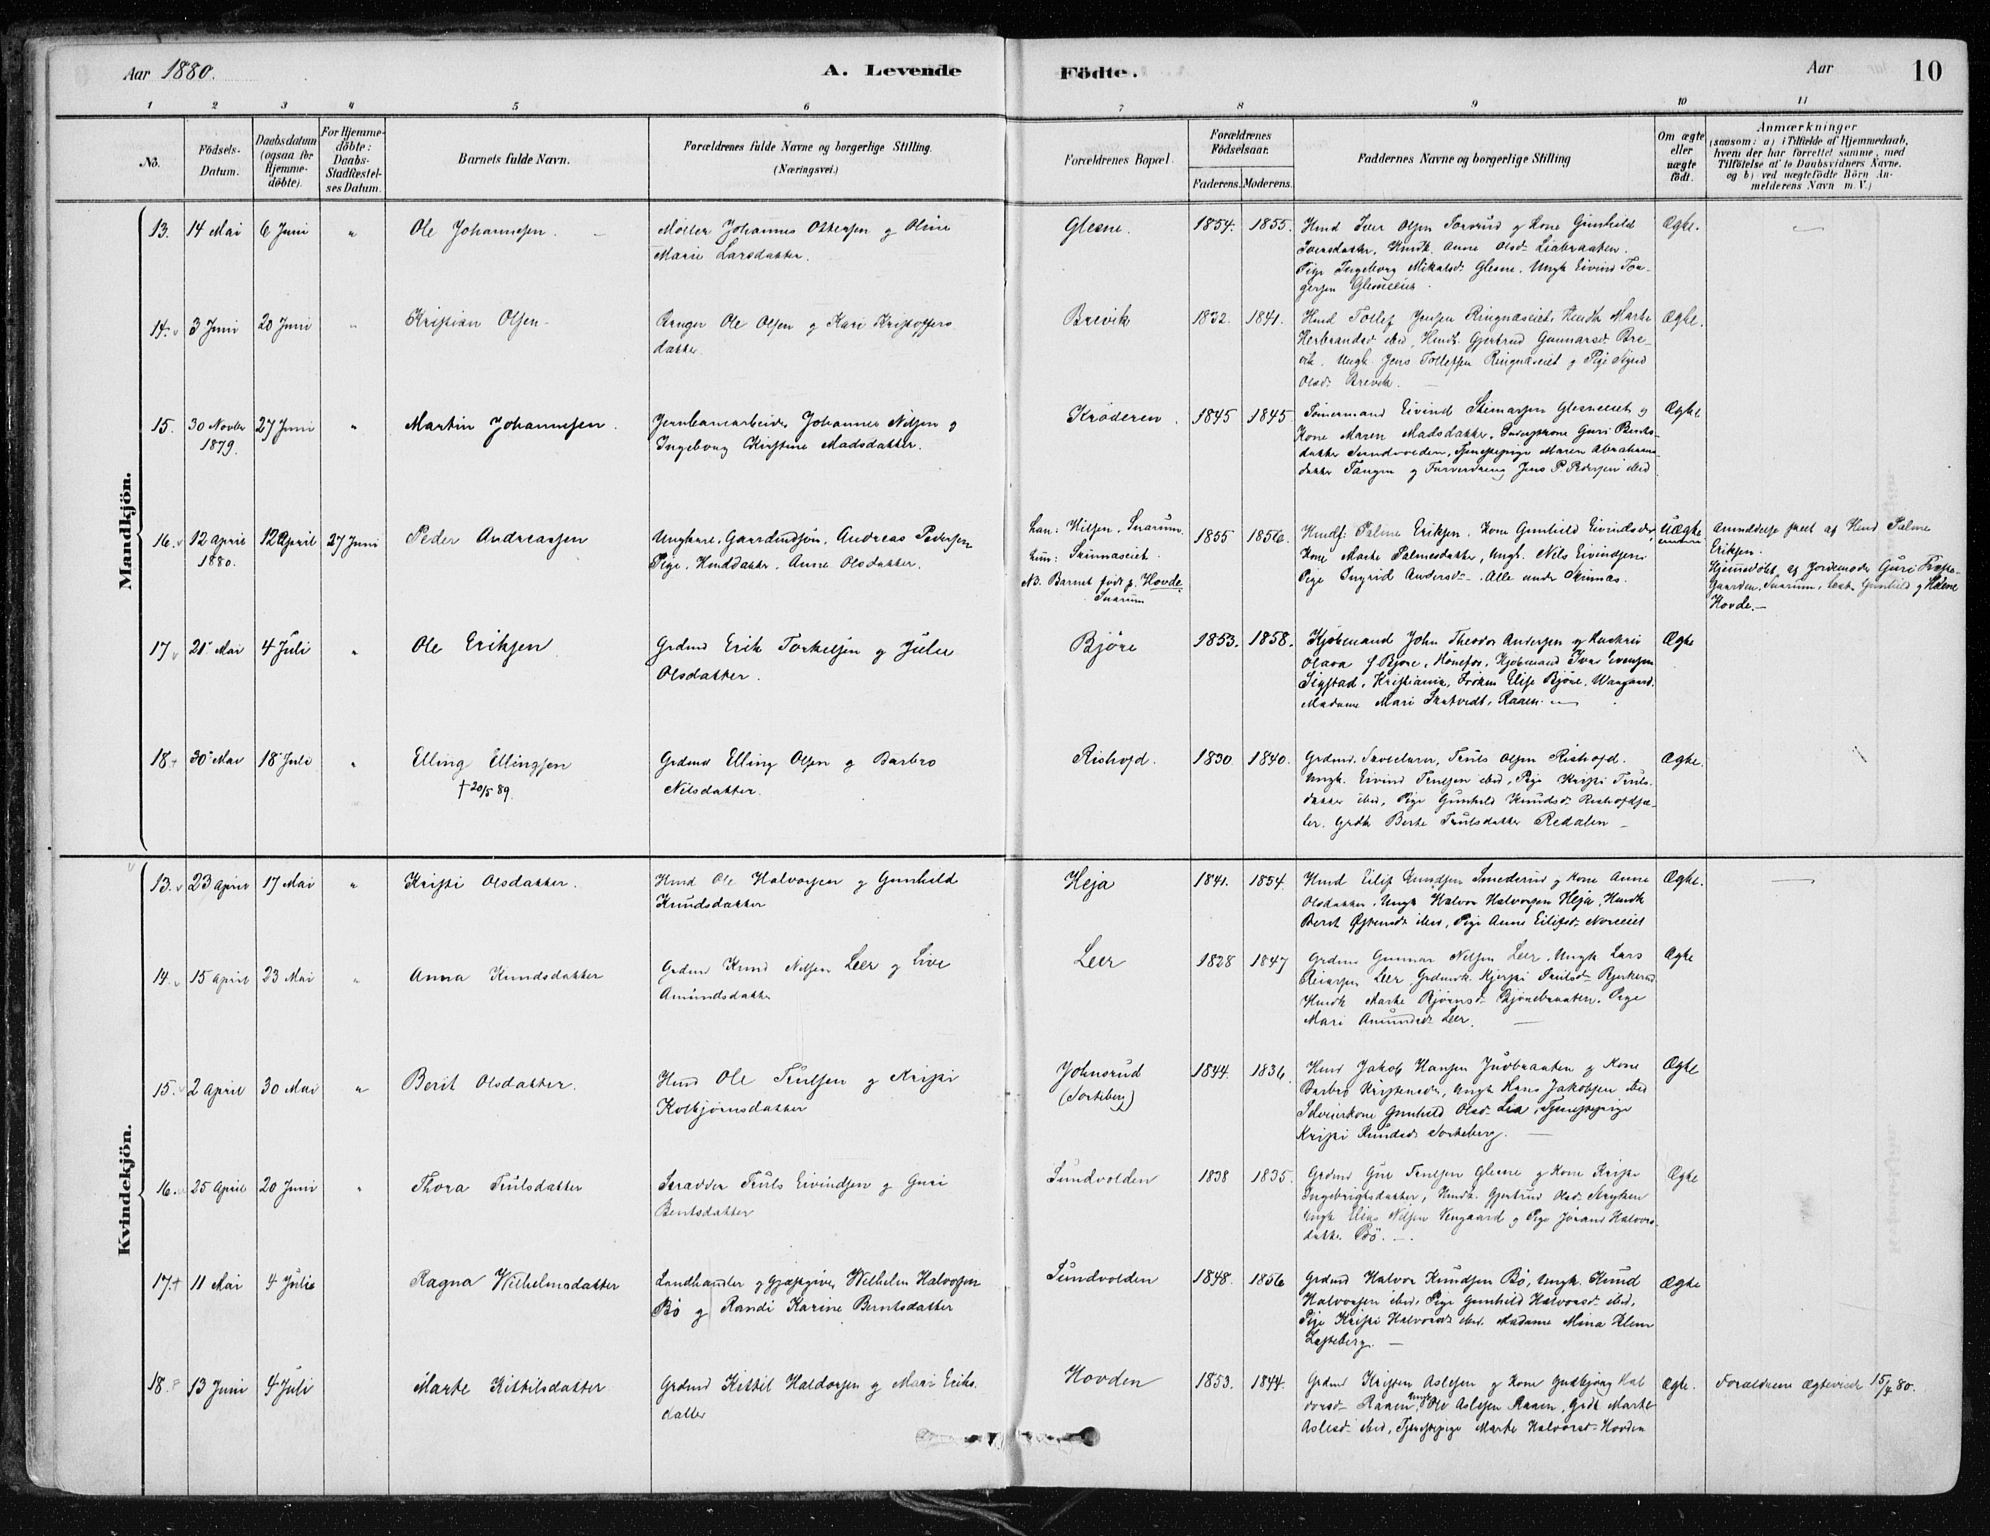 Aar 1880. A. Levende Födte. Aar 10
1 2 3 4 5 6 7 8 9 10 11
No.
Födsels-Datum.
Daabsdatum (ogsaa for Hjemmedöbte).
For Hjemmedöbte: Daabs-Stadfæstelses Datum.
Barnets fulde Navn.
Forældrenes fulde Navne og borgerlige Stilling. (Næringsvei.)
Forældrenes Bopæl.
Forældrenes Födselsaar.
Faderens. Moderens.
Faddernes Navne og borgerlige Stilling
Om ægte eller uægte födt.
Anmærkninger
(saasom: a) i Tilfælde af Hjemmedaab, hvem der har forrettet samme, med Tilföielse af to Daabsvidners Navne. og b) ved uægtefödte Börn Anmelderens Navn m. V.)
Mandkjön.
13. 14 Mai 6 Juni " Ole Johannesen.
Möller Johannes Ottersen og Oline
Marie Larsdatter.
Glesne. 1854. 1855.
Hmd Iver Olsen Torsrud og Kone Gunhild
Iversdatter, Hmdk. Anne Olsd. Liabraaten.
Pige Ingeborg Mikalsd. Glesne. Ungk Eivind Tor-
gersen Glesneeiet.
Ægte.
14. 3 Juni 20 Juni " Kristian Olsen
Bruger Ole Olsen og Kari Kristoffers
datter.
Brevik 1832. 1841.
Hmd Tollef Jensen Ringnæseiet, Hmdk Marte
Herbrandsd ibid, Hmdk. Gjertrud Gunnarsd Bre-
vik. Ungk. Jens Tollefsen Ringnæseiet og Pige Sigrid
Olsd. Brevik.
Ægte.
15. 30 Novber 1879. 27 Juni " Martin Johannesen.
Jernbanearbeider Johannes Nilsen og
Ingeborg Kirstine Madsdatter.
Kröderen. 1845 1845
Tömermand Eivind Steinarsen Glesneeiet og
Kone Maren Madsdatter. Guri Bents-
datter Sundvolden, Tjenestepige Maren Abrahams
datter Tangen og Jens P. Pedersen ibid
Ægte
16. 12 April 1880. 12 April 27 Juni Peder Andreassen
Ungkarl, Gaardmdsön, Andreas Pedersen
Pige, Hmddatter, Anne Olsdatter.
han: Hilsen. Snarum.
hun: Skinnaseiet.
NB. Barnet födt p. Hovde
Snarum
1855 1856.
Hmdf. Palme Eriksen. Kone Gunhild Eivindsdr,
Kone Marte Palmesdatter, Ungk. Nils Eivindsen
Pige Ingrid Andersd. Alle under Skinnas.
Uægte
Anmeldelse skeet af Hmd Palme
Eriksen.
Hjemmedöbt af Jordemoder Guri
Snarum. Gunhild og
Hovde.
17 21 Mai 4 Juli " Ole Eriksen
Grdmd Erik Torkelsen og Julie
Olsdatter.
Björe 1853. 1858.
Kjöbmand John Theodor Andersen og Hustru
Olava f Björe, Hönefos, Kjöbmand Ivar Evensen
Sigstad, Kristiania, Fröken Elise Björe, Waagaard.
Madame Mari Skatvedt, Raaen.
Ægte
18 30 Mai 18 Juli " Elling Ellingsen
† 20/5 89.
Grdmd Elling Olsen og Barbro
Nilsdatter.
Rishovd. 1830. 1840.
Grdmd. Truls Olsen Rishovd.
Ungk. Eivind Trulsen ibid, Pige Kristi Truls.
datter ibid, Pige Gunhild Knudsd.
Grdk Berte Trulsdatter Redalen
Ægte.
Kvindekjön.
13. 23 April 17 Mai " Kristi Olsdatter.
Hmd Ole Halvorsen og Gunhild
Knudsdatter
Heja 1841. 1854.
Hmd Eilif Knudsen Smederud og Kone Anne
Olsdatter. Ungk Halvor Halvorsen Heja, Hmdk
Berit Östensd. ibid, Pige Anne Eilifsd. Noreeiet
Ægte.
14. 15 April 23 Mai " Anna Knudsdatter
Grdmd Knud Nilsen Leer og Live
Amundsdatter
Leer 1828 1847
Grdmd Gunnar Nilsen Leer. Ungk Lars
Leer. Grdmdk. Kjersti Trulsd. Bjerkerud
Hmdk Marte Björnsd. Bjönebraaten. Pige
Mari Amundsd. Leer.
Ægte
15. 2 April 30 Mai " Berit Olsdatter.
Hmd Ole Trulsen og Kristi
Kolbjörnsdatter
Johnsrud (Sorteberg) 1844. 1836.
Hmd Jakob Hansen Juvbraaten og Kone
Barbro Kristensdr, Ungk Hans Jakobsen ibid
Selveierkone Gunhild Olsd. Lia, Tjenestepige
Kristi Knudsd. Sorteberg.
Ægte
16. 25 April 20 Juni " Thora Trulsdatter
Skrædder Truls Eivindsen og Guri
Bentsdatter
Sundvolden 1838 1835.
Grdmd Gul Trulsen Glesne og Kone Kristi
Ingebrigtsdatter, Hmdk. Gjertrud Olsd.
Ungk Elias Nilsen Vengaard og Pige Jörand Halvors-
datter Bö.
Ægte
17. 11 Mai 4 Juli Ragna Wilhelmsdatter
Landhandler og Gjæstgiver Wilhelm Halvorsen
Bö og Randi Karine Berntsdatter
Sundvolden 1848. 1856
Grdmd Halvor Knudsen Bö, Ungk. Knud
Halvorsen ibid, Pige Gunhild Halvorsd. ibid,
Pige Kristi Halvorsd. ibid. Madame Mina
Ægte
18. 13 Juni 4 Juli Marte Kittilsdatter
Grdmd Kittil Haldorsen og Mari Eriks
datter
Hovden 1853. 1844.
Grdmd Kristen Aslesen og Kone Gudbjörg Hal
dorsd. Raaen, Ungk Ole Aslesen Raaen, Grdk Marte
Aslesd. ibid, Tjenestepige Marte Halvorsd. Hovden
Ægte.
Forældrene Ægteviede 15/7 80.